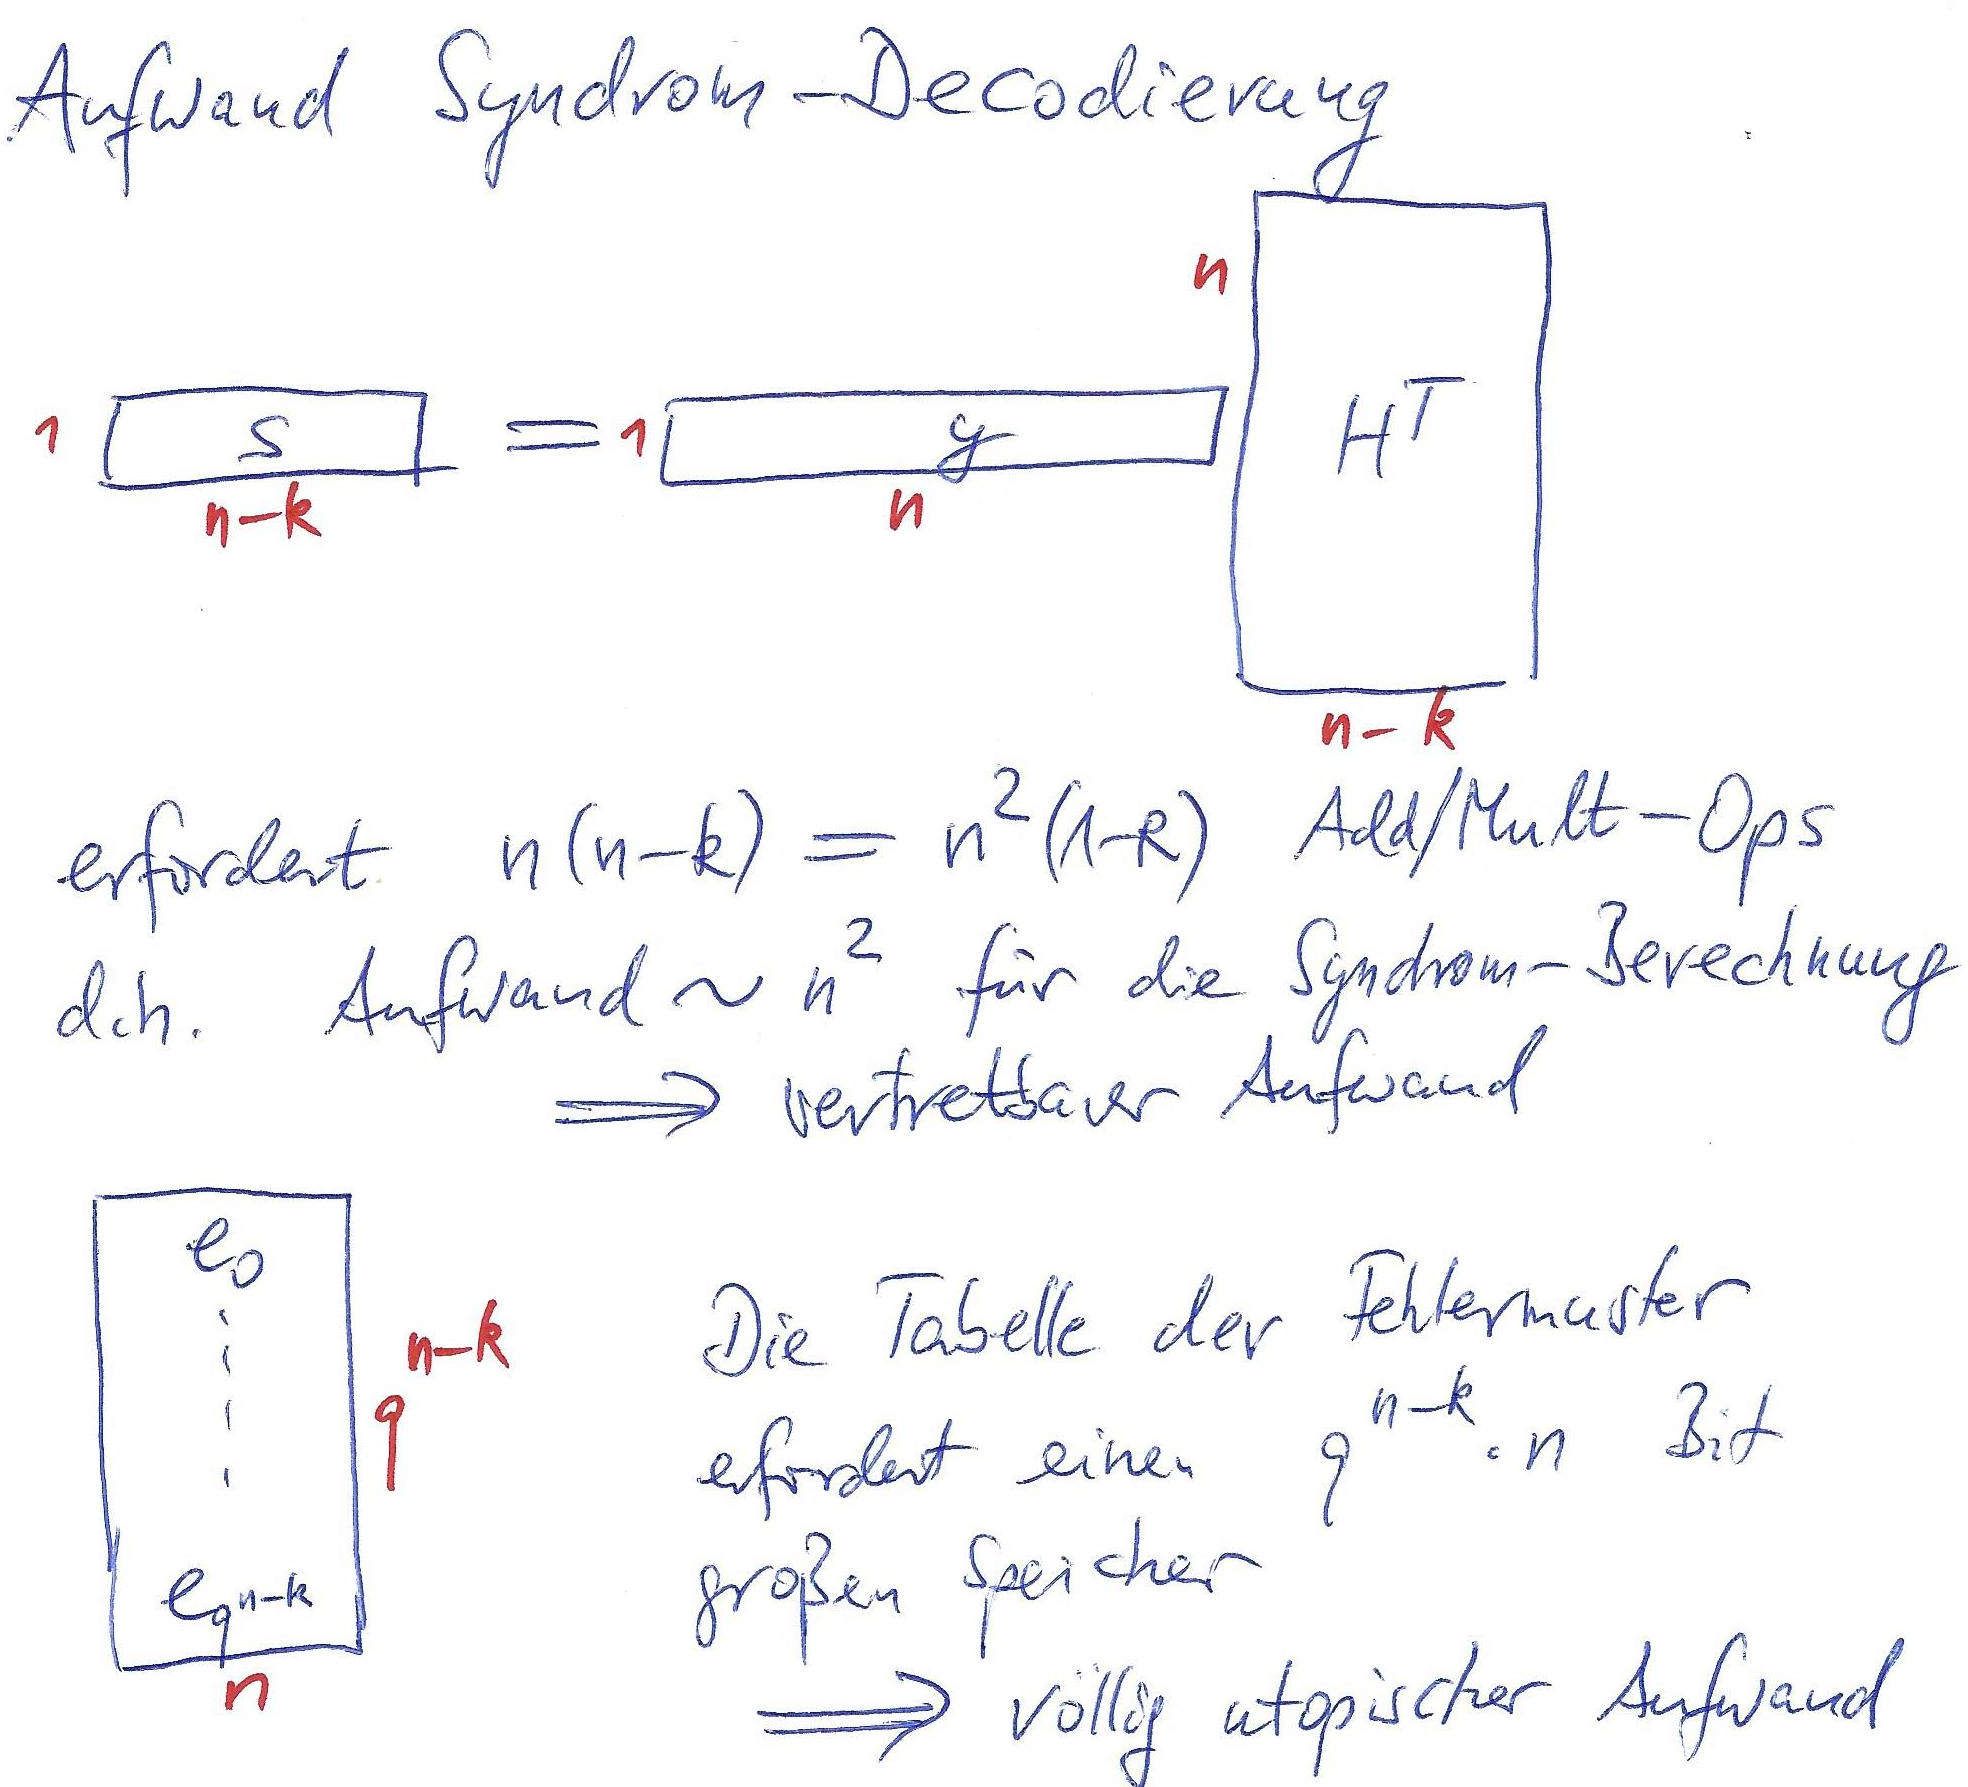 Aufwand Syndrom-Decodierung
n
1 s = 1 y H^T
n-k n
n-k
erfordert n(n-k) = n^2(1-R) Add/Mult-Ops
d.h. Aufwand ~ n^2 für die Syndrom-Berechnung
⟹ vertretbarer Aufwand
e_0
q^{n-k}
e_{q^{n-k}}
n
Die Tabelle der Fehlermuster
erfordert einen q^{n-k} · n Bit
großen Speicher
⟹ völlig utopischer Aufwand